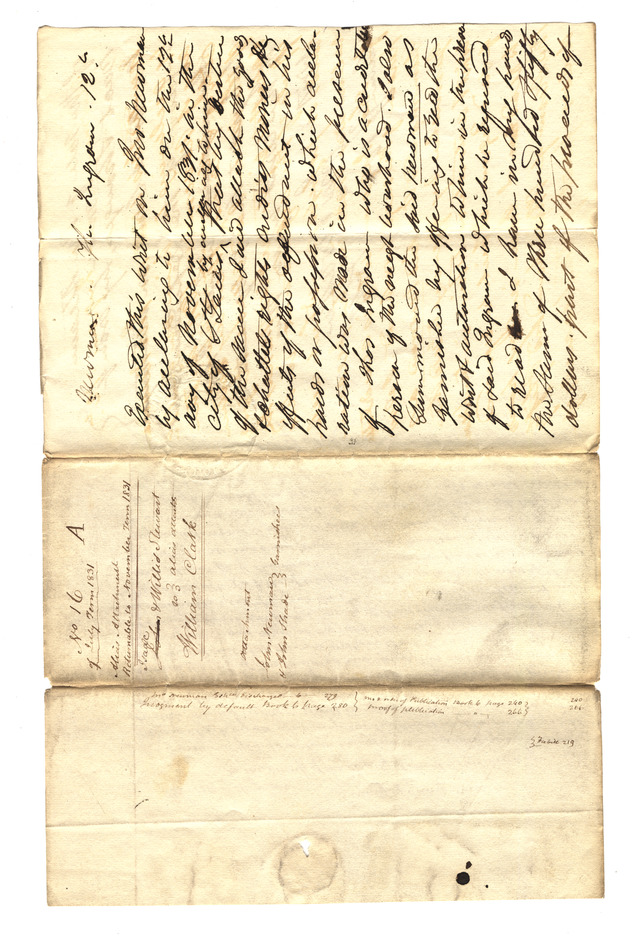 Newman . Thos Ingram . 12 c
Executed this Writ on Jno Newman
by delivering to him on the 12th
day of November 1831. in the
City of St Louis,
of the same I did attach the goods
& chattels rights credits Moneys &
effects of the defendant in his
hands or possession. which declaration
was made in the presence
of Thos Ingram who is a creditable
person of the neighbourhood I also
summoned the said Newman as
Garnishee by offering to read the
writ & declaration to him in the presence
of said Ingram which he refused
to read I have in my hand
the sum of Three hundred & fifty
dollars part of the proceeds of
No 16 A
of July Term 1831
Alias Attachment
Returnable to November Term 1831
Isaac
& Willis Stewart
vs } alias attach
William Clark
Attachment
John Newman }
& John Shade } Garnishees
Jno Newman Garnishee discharged 279
Judgment by default Book 6 page 280 } and order of Publication Book 6 page 240 }
Proof of publication " " 266 }
240
266
219